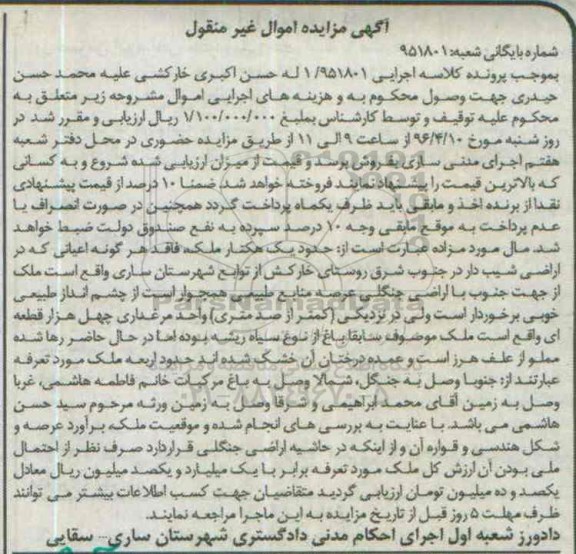 آگهی مزایده اموال غیر منقول
شماره بایگانی شعبه: ۹۵۱۸۰۱
بموجب پرونده کلاسه اجرایی ۹۵۱۸۰۱/ ۱ له حسن اکبری خارکشی علیه محمد حسن
حیدری جهت وصول محکوم به و هزینه های اجرایی اموال مشروحه زیر متعلق به
محکوم علیه توقیف و توسط کارشناس بمبلغ ۱/۱۰۰/۰۰۰/۰۰۰ ریال ارزیابی و مقرر شد در
روز شنبه مورخ ۹۶/۴/۱۰ از ساعت ۹ الی ۱۱ از طریق مزایده حضوری در محل دفتر شعبه
هفتم اجرای مدنی ساری بفروش برسد و قیمت از میزان ارزیابی شده شروع و به کسانی
که بالاترین قیمت را پیشنهاد نمایند فروخته خواهد شد. ضمنا ۱۰ درصد از قیمت پیشنهادی
نقدا از برنده اخذ و مابقی باید ظرف یکماه پرداخت گردد همچنین در صورت انصراف یا
عدم پرداخت به موقع مابقی وجه ۱۰ درصد سپرده به نفع صندوق دولت ضبط خواهد
شد. مال مورد مزاده عبارت است از: حدود یک هکتار ملکه فاقد هر گونه اعیانی که در
اراضی شیب دار در جنوب شرق روستای خارکش از توابع شهرستان ساری واقع است ملک
از جهت جنوب با اراضی جنگلی عرصه منابع طبیعی همجوار است از چشم انداز طبیعی
خوبی برخوردار است ولی در نزدیکی (کمتر از صد متری) واحد مرغداری چهل هزار قطعه
ای واقع است ملک موصوف سابقا باغ از نوع سیاه ریشه بوده اما در حال حاضر رها شده
مملو از علف هرز است و عمده درختان آن خشک شده اند حدود اربعه ملک مورد تعرفه
عبارتند از: جنوبا وصل به جنگل، شمالا وصل به باغ مرکبات خانم فاطمه هاشمی، غربا
وصل به زمین آقای محمد ابراهیمی و شرقا وصل به زمین ورثه مرحوم سید حسن
هاشمی می باشد. با عنایت به بررسی های انجام شده و موقعیت ملک، برآورد عرصه و
شکل هندسی و قواره آن و از اینکه در حاشیه اراضی جنگلی قراردارد صرف نظر از احتمال
ملی بودن آن ارزش کل ملک مورد تعرفه برابر با یک میلیارد و یکصد میلیون ریال معادل
یکصد و ده میلیون تومان ارزیابی گردید متقاضیان جهت کسب اطلاعات بیشتر می توانند
ظرف مهلت ۵ روز قبل از تاریخ مزایده به این ماجرا مراجعه نمایند.
دادورز شعبه اول اجرای احکام مدنی دادگستری شهرستان ساری- سقایی